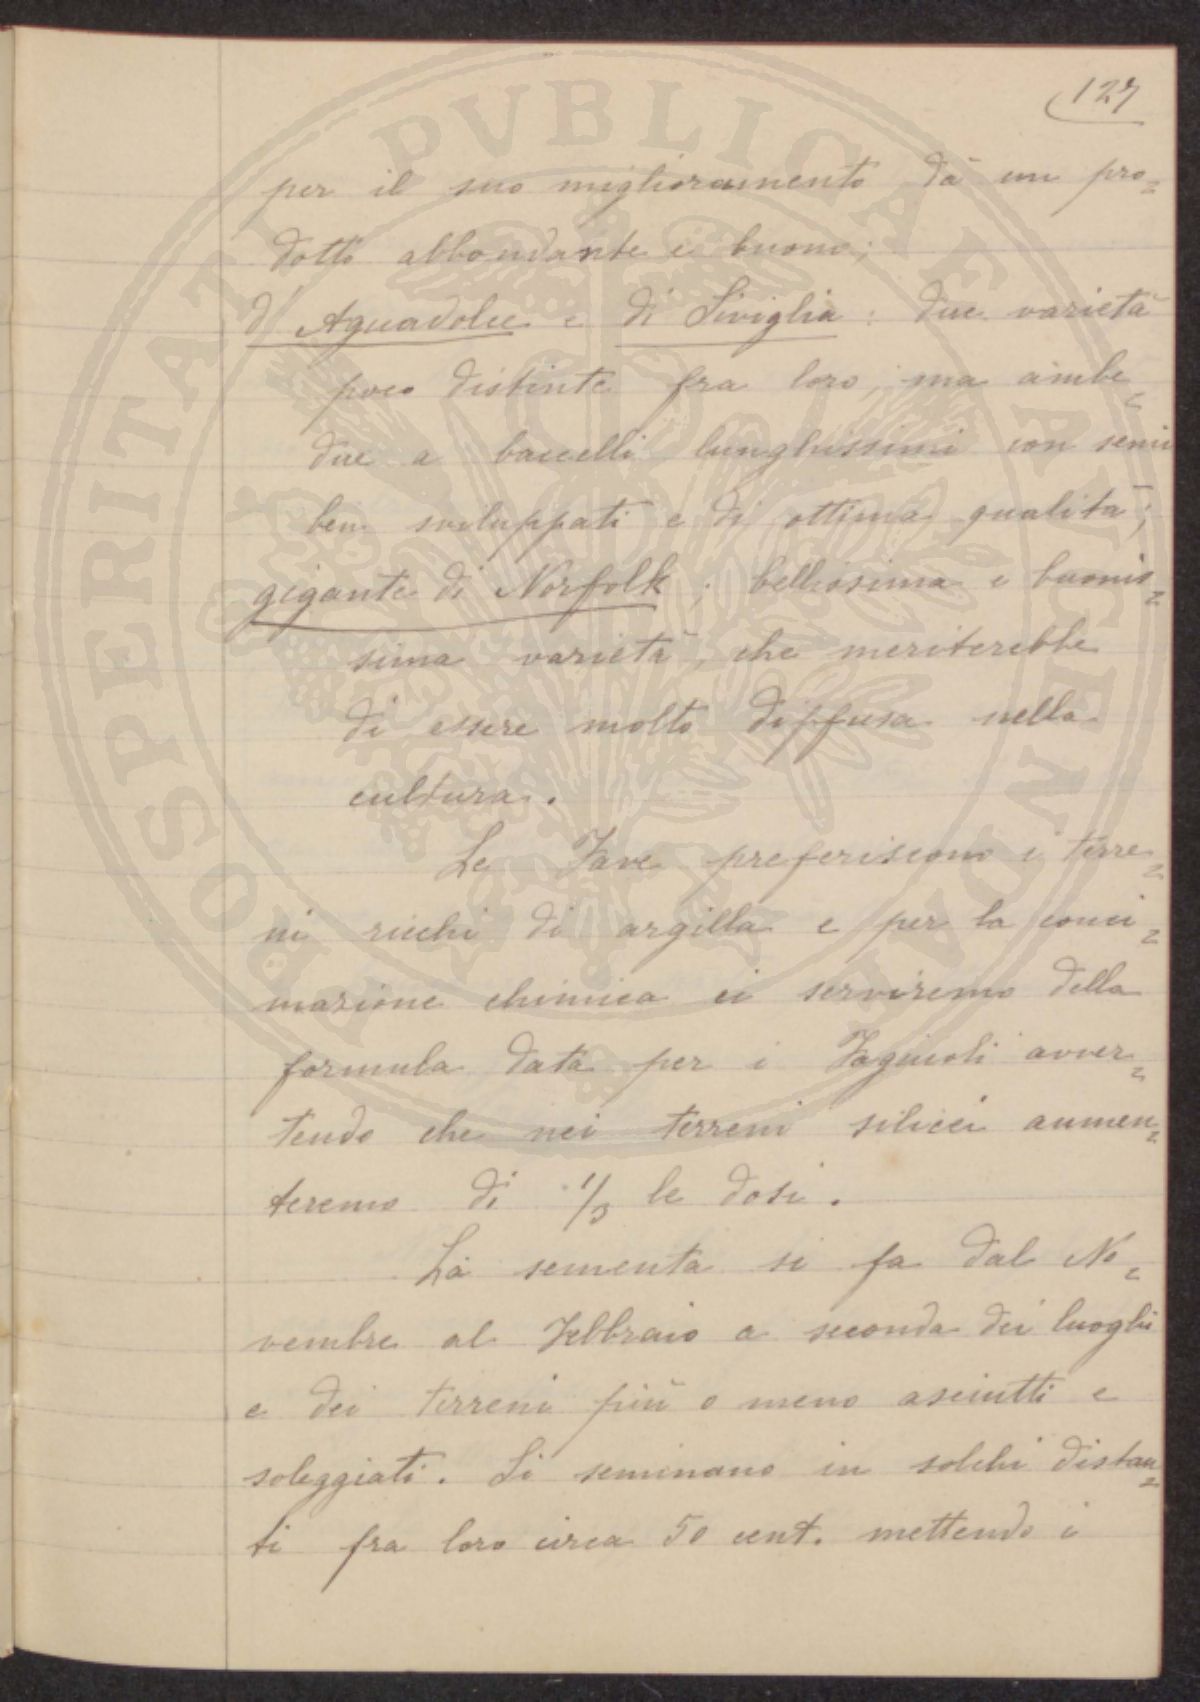 127
per il suo miglioramento dà un pro=
dotto abbondante e buono;
d'Aguadolce e di Siviglia: due varietà
poco distinte fra loro, ma ambe=
due a baccelli lunghissimi con semi
ben sviluppati e di ottima qualità;
gigante di Norfolk; bellissima e buonis=
sima varietà, che meriterebbe
di essere molto diffusa nella
cultura.
Le Fave preferiscono i terre=
ni ricchi di argilla e per la conci=
mazione chimica ci serviremo della
formula data per i Fagiuoli avver=
tendo che nei terreni silicei aumen=
teremo di 1/3 le dosi.
La sementa si fa dal No=
vembre al Febbraio a seconda dei luoghi
e dei terreni più o meno asciutti e
soleggiati. Si seminano in solchi distan=
ti fra loro circa 50 cent. mettendo i
PROSPERITATI PVBLICAE AVGENDAE